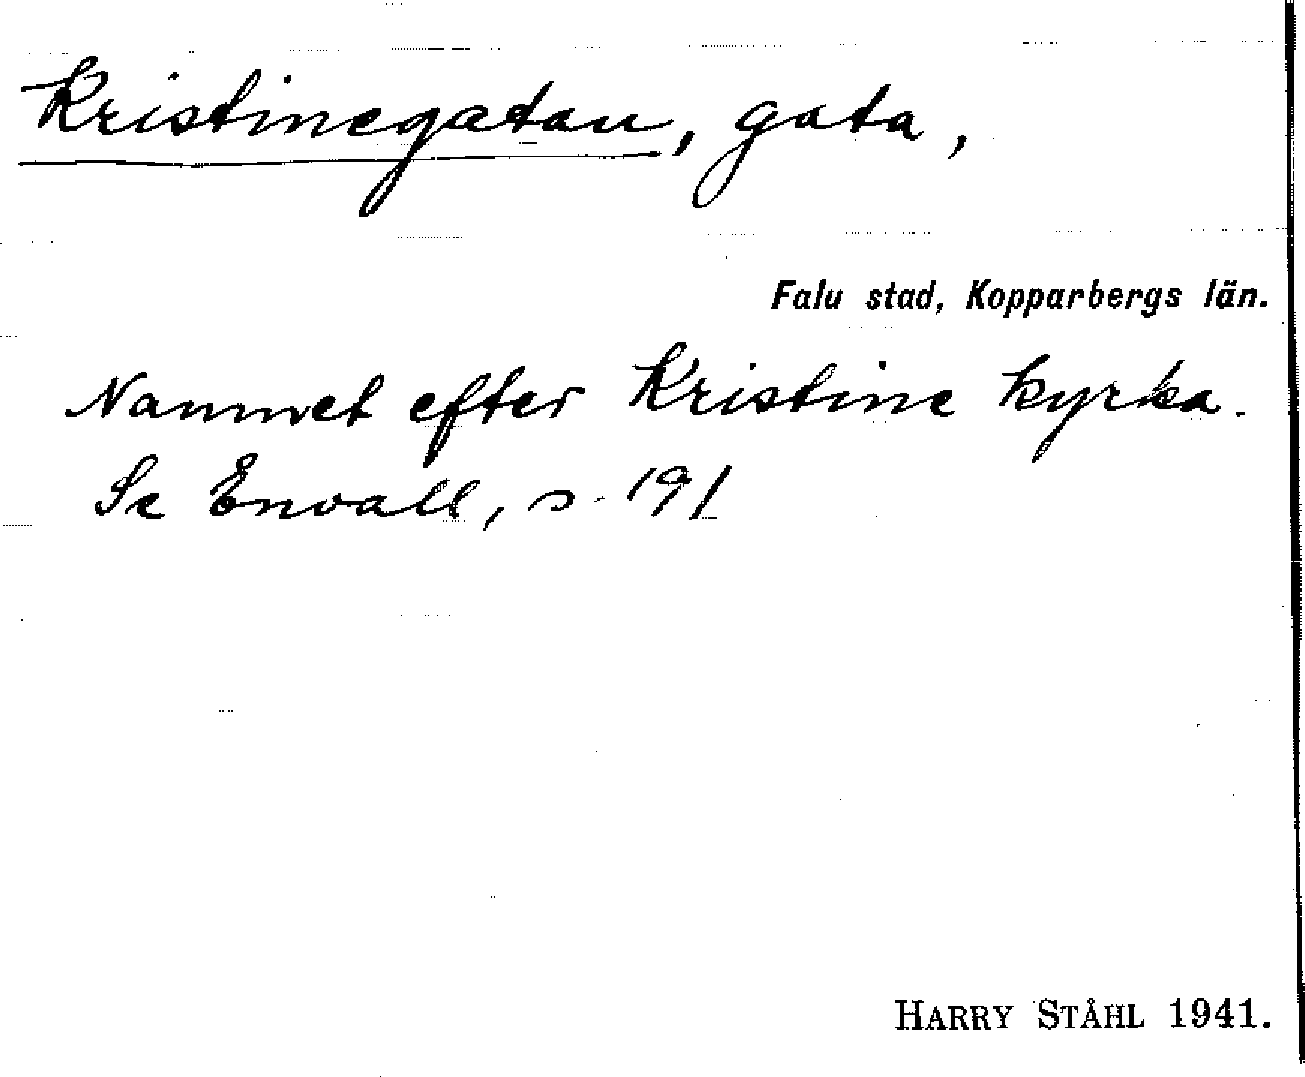 Kristinegatan, gata,
Falu stad, Kopparbergs län.
Namnet efter Kristine kyrka.
Se Envall, s. 191
HARRY STÅHL 1941.